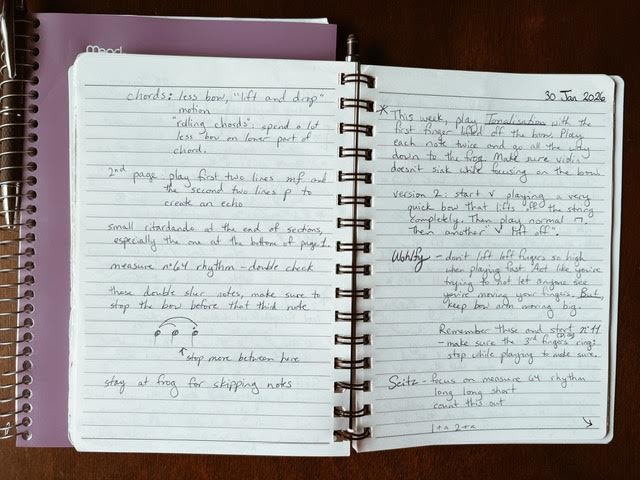 Mead
chords: less bow, "lift and drop"
motion
"rolling chords": spend a lot
less bow on lower part of
chord.
2nd page: play first two lines mf and
the second two lines p to
create an echo
small ritardando at the end of sections,
especially the one at the bottom of page 1.
measure nº 64 rhythm - double check
those double slur notes, make sure to
stop the bow before that third note
↑ stop more between here
stay at frog for skipping notes
30 Jan 2026
* This week, play Tonalisation with the
first finger lifted off the bow. Play
each note twice and go all the way
down to the frog. Make sure violin
doesn't sink while focusing on the bow.
version 2: start V playing a very
quick bow that lifts off the string
completely. Then play normal ⊓.
Then another "V lift off".
- don't lift left fingers so high
when playing fast. Act like you're
trying to not let anyone see
you're moving your fingers. But,
keep bow arm moving big.
Remember these and start nº 11
- make sure the 3rd fingers ring:
stop while playing to make sure.
Seitz - focus on measure 64 rhythm
long long short
count this out
1 + a 2 + a